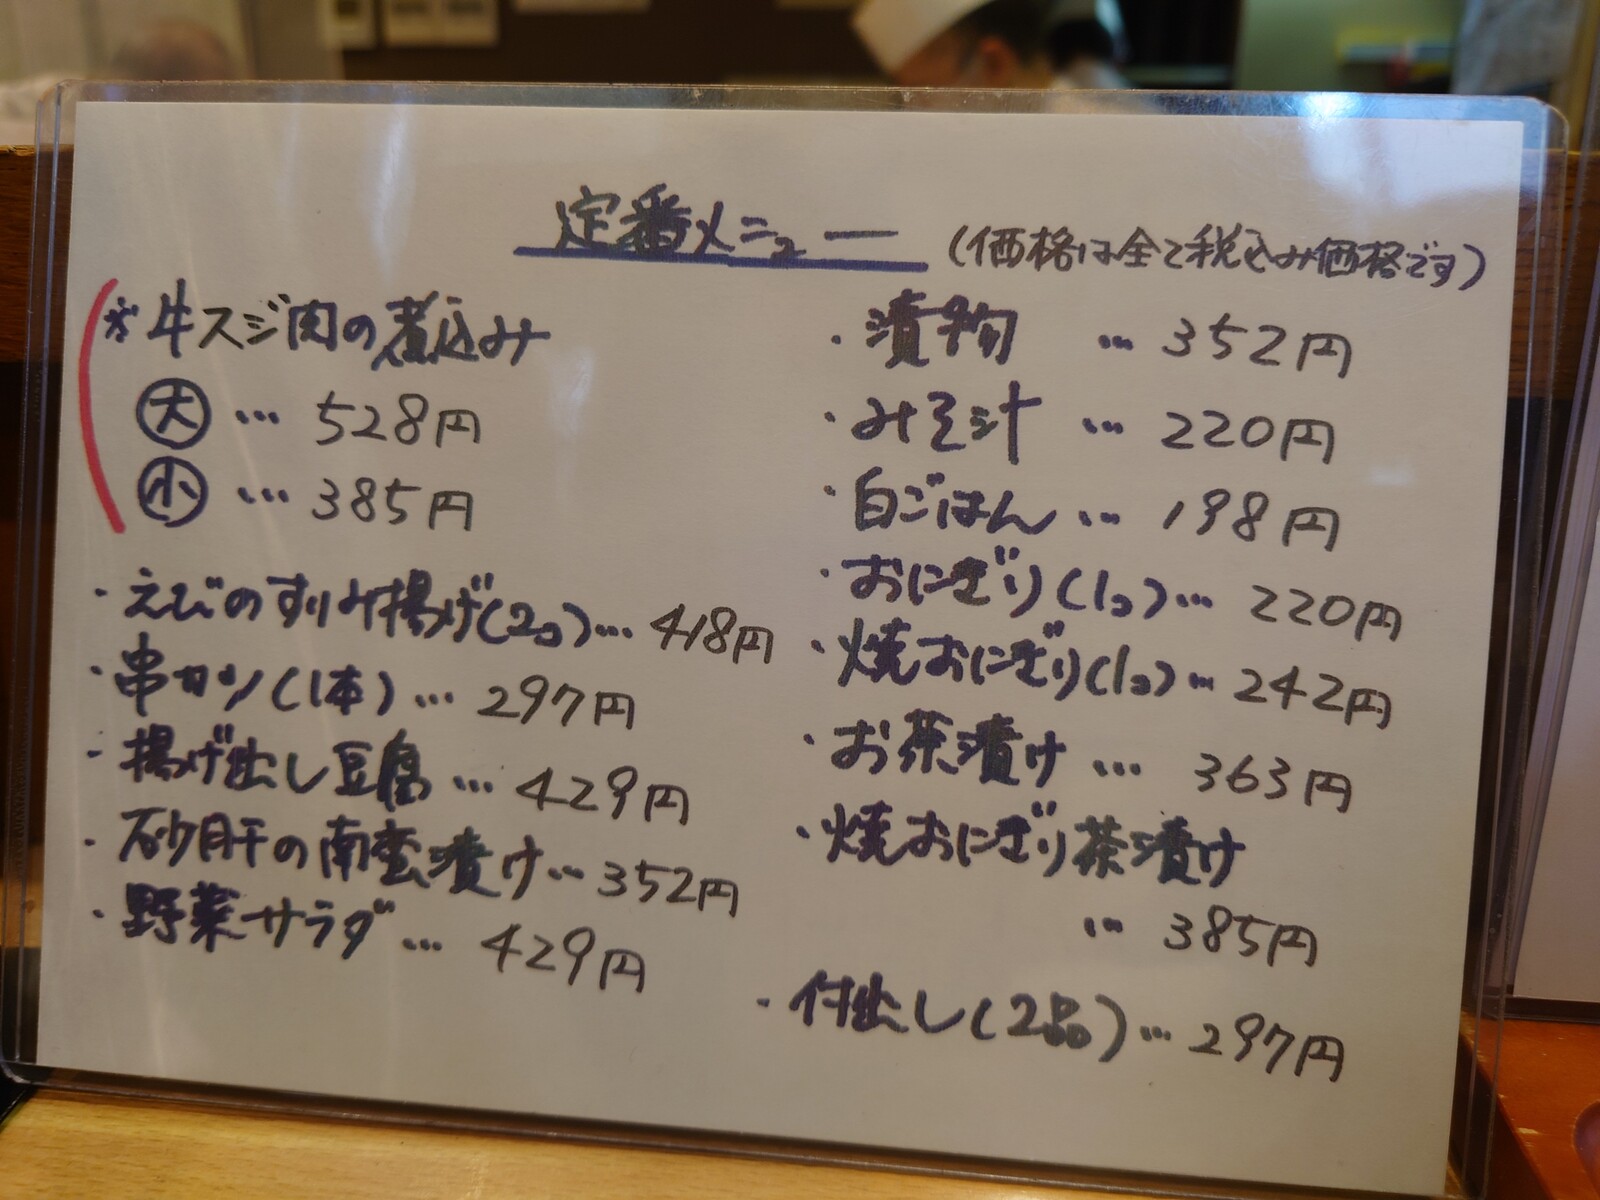 定番メニュー (価格は全て税込み価格です)
※牛スジ肉の煮込み
大 … 528円
小 … 385円
・えびのすりみ揚げ(2コ)… 418円
・串カツ(1本)… 297円
・揚げ出し豆腐 … 429円
・砂肝の南蛮漬け… 352円
・野菜サラダ … 429円
・漬物 … 352円
・みそ汁 … 220円
・白ごはん … 198円
・おにぎり(1コ)… 220円
・焼おにぎり(1コ)… 242円
・お茶漬け … 363円
・焼おにぎり茶漬け
… 385円
・付出し(2品)… 297円